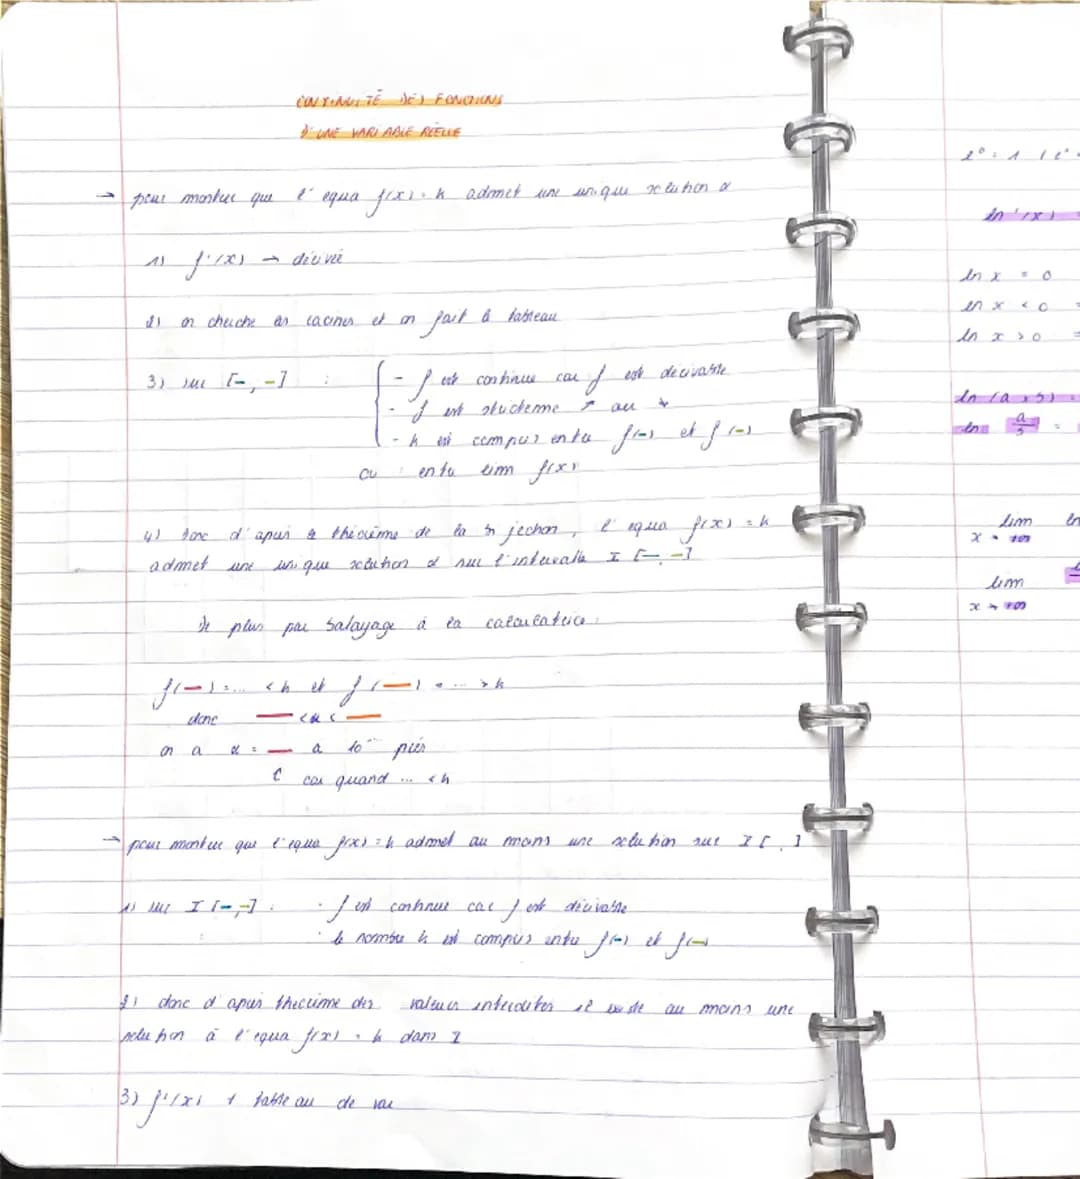 CONTINUITÉ DES FONCTIONS
D'UNE VARIABLE RÉELLE
→ pour montrer que l'equa f(x) = k admet une unique solution α
1) f'(x) → dérivée
2) on cherche les racines et on fait le tableau
3) sur [-, -] :
- f est continue car f est dérivable
- f est ↗ ou ↘
- k est compris entre f(-) et f(-)
ou entre lim f(x)
4) donc d'après le théorème de la bijection, l'equa f(x) = k
admet une unique solution α sur l'intervalle I [-, -]
De plus par balayage à la calculatrice :
f(-) = ... < k et f(-) = ... > k
donc — < α < —
on a α = — à 10⁻ près
car quand ... < k
→ pour montrer que l'equa f(x) = k admet au moins une solution sur I [ , ]
1) sur I [-,-] : · f est continue car f est dérivable
· le nombre k est compris entre f(-) et f(-)
2) donc d'après théorème des valeurs il existe au moins une
solution à l'equa f(x) = k dans I
3) f'(x) + tableau de var
ln'(x) =
ln x = 0
ln x < 0
ln x > 0
ln (a × b) =
ln a/b =
lim
x → +∞
lim
x → +∞